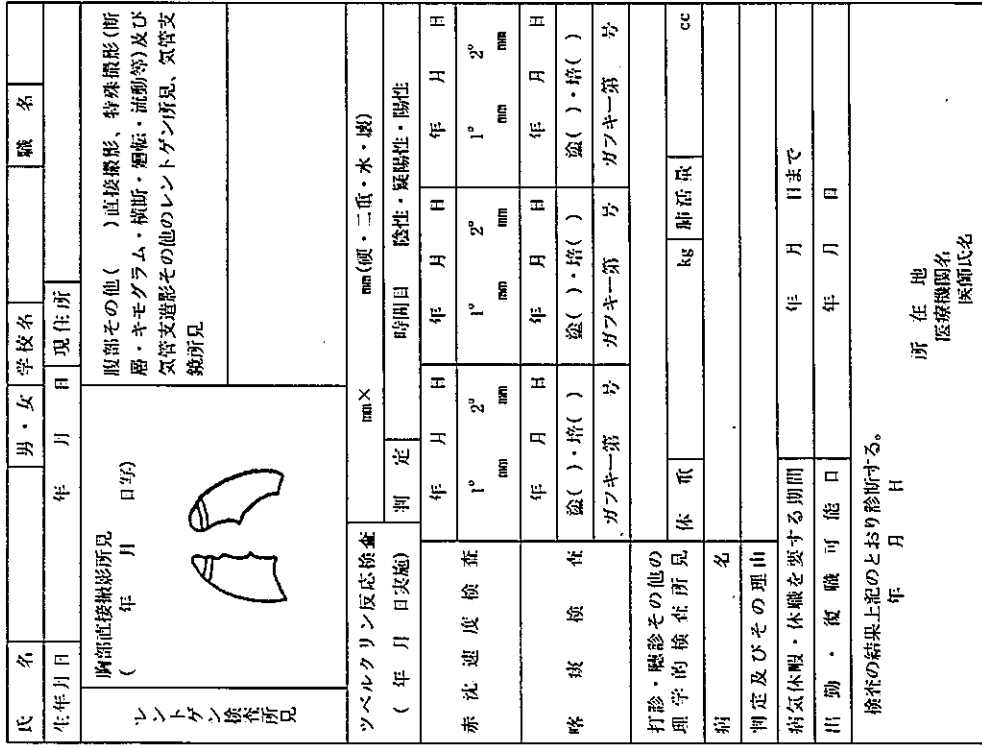 氏名 男・女 学校名 職名
生年月日 年 月 日 現住所
レントゲン検査所見
胸部直接撮影所見
( 年 月 日写)
腹部その他( )直接撮影、特殊撮影(断
層・キモグラム・横断・廻転・流動等)及び
気管支造影その他のレントゲン所見、気管支
鏡所見
ツベルクリン反応検査 mm× mm(硬・二重・水・壊)
( 年 月 日実施) 判定 時間目 陰性・疑陽性・陽性
赤沈速度検査 年 月 日 年 月 日 年 月 日
1° 2° 1° 2° 1° 2°
mm mm mm mm mm mm
喀痰検査 年 月 日 年 月 日 年 月 日
塗( )・培( ) 塗( )・培( ) 塗( )・培( )
ガフキー第 号 ガフキー第 号 ガフキー第 号
打診・聴診その他の
理学的検査所見
体重 kg 肺活量 cc
病名
判定及びその理由
病気休暇・休職を要する期間 年 月 日まで
出勤・復職可能日 年 月 日
検査の結果上記のとおり診断する。
年 月 日
所在地
医療機関名
医師氏名